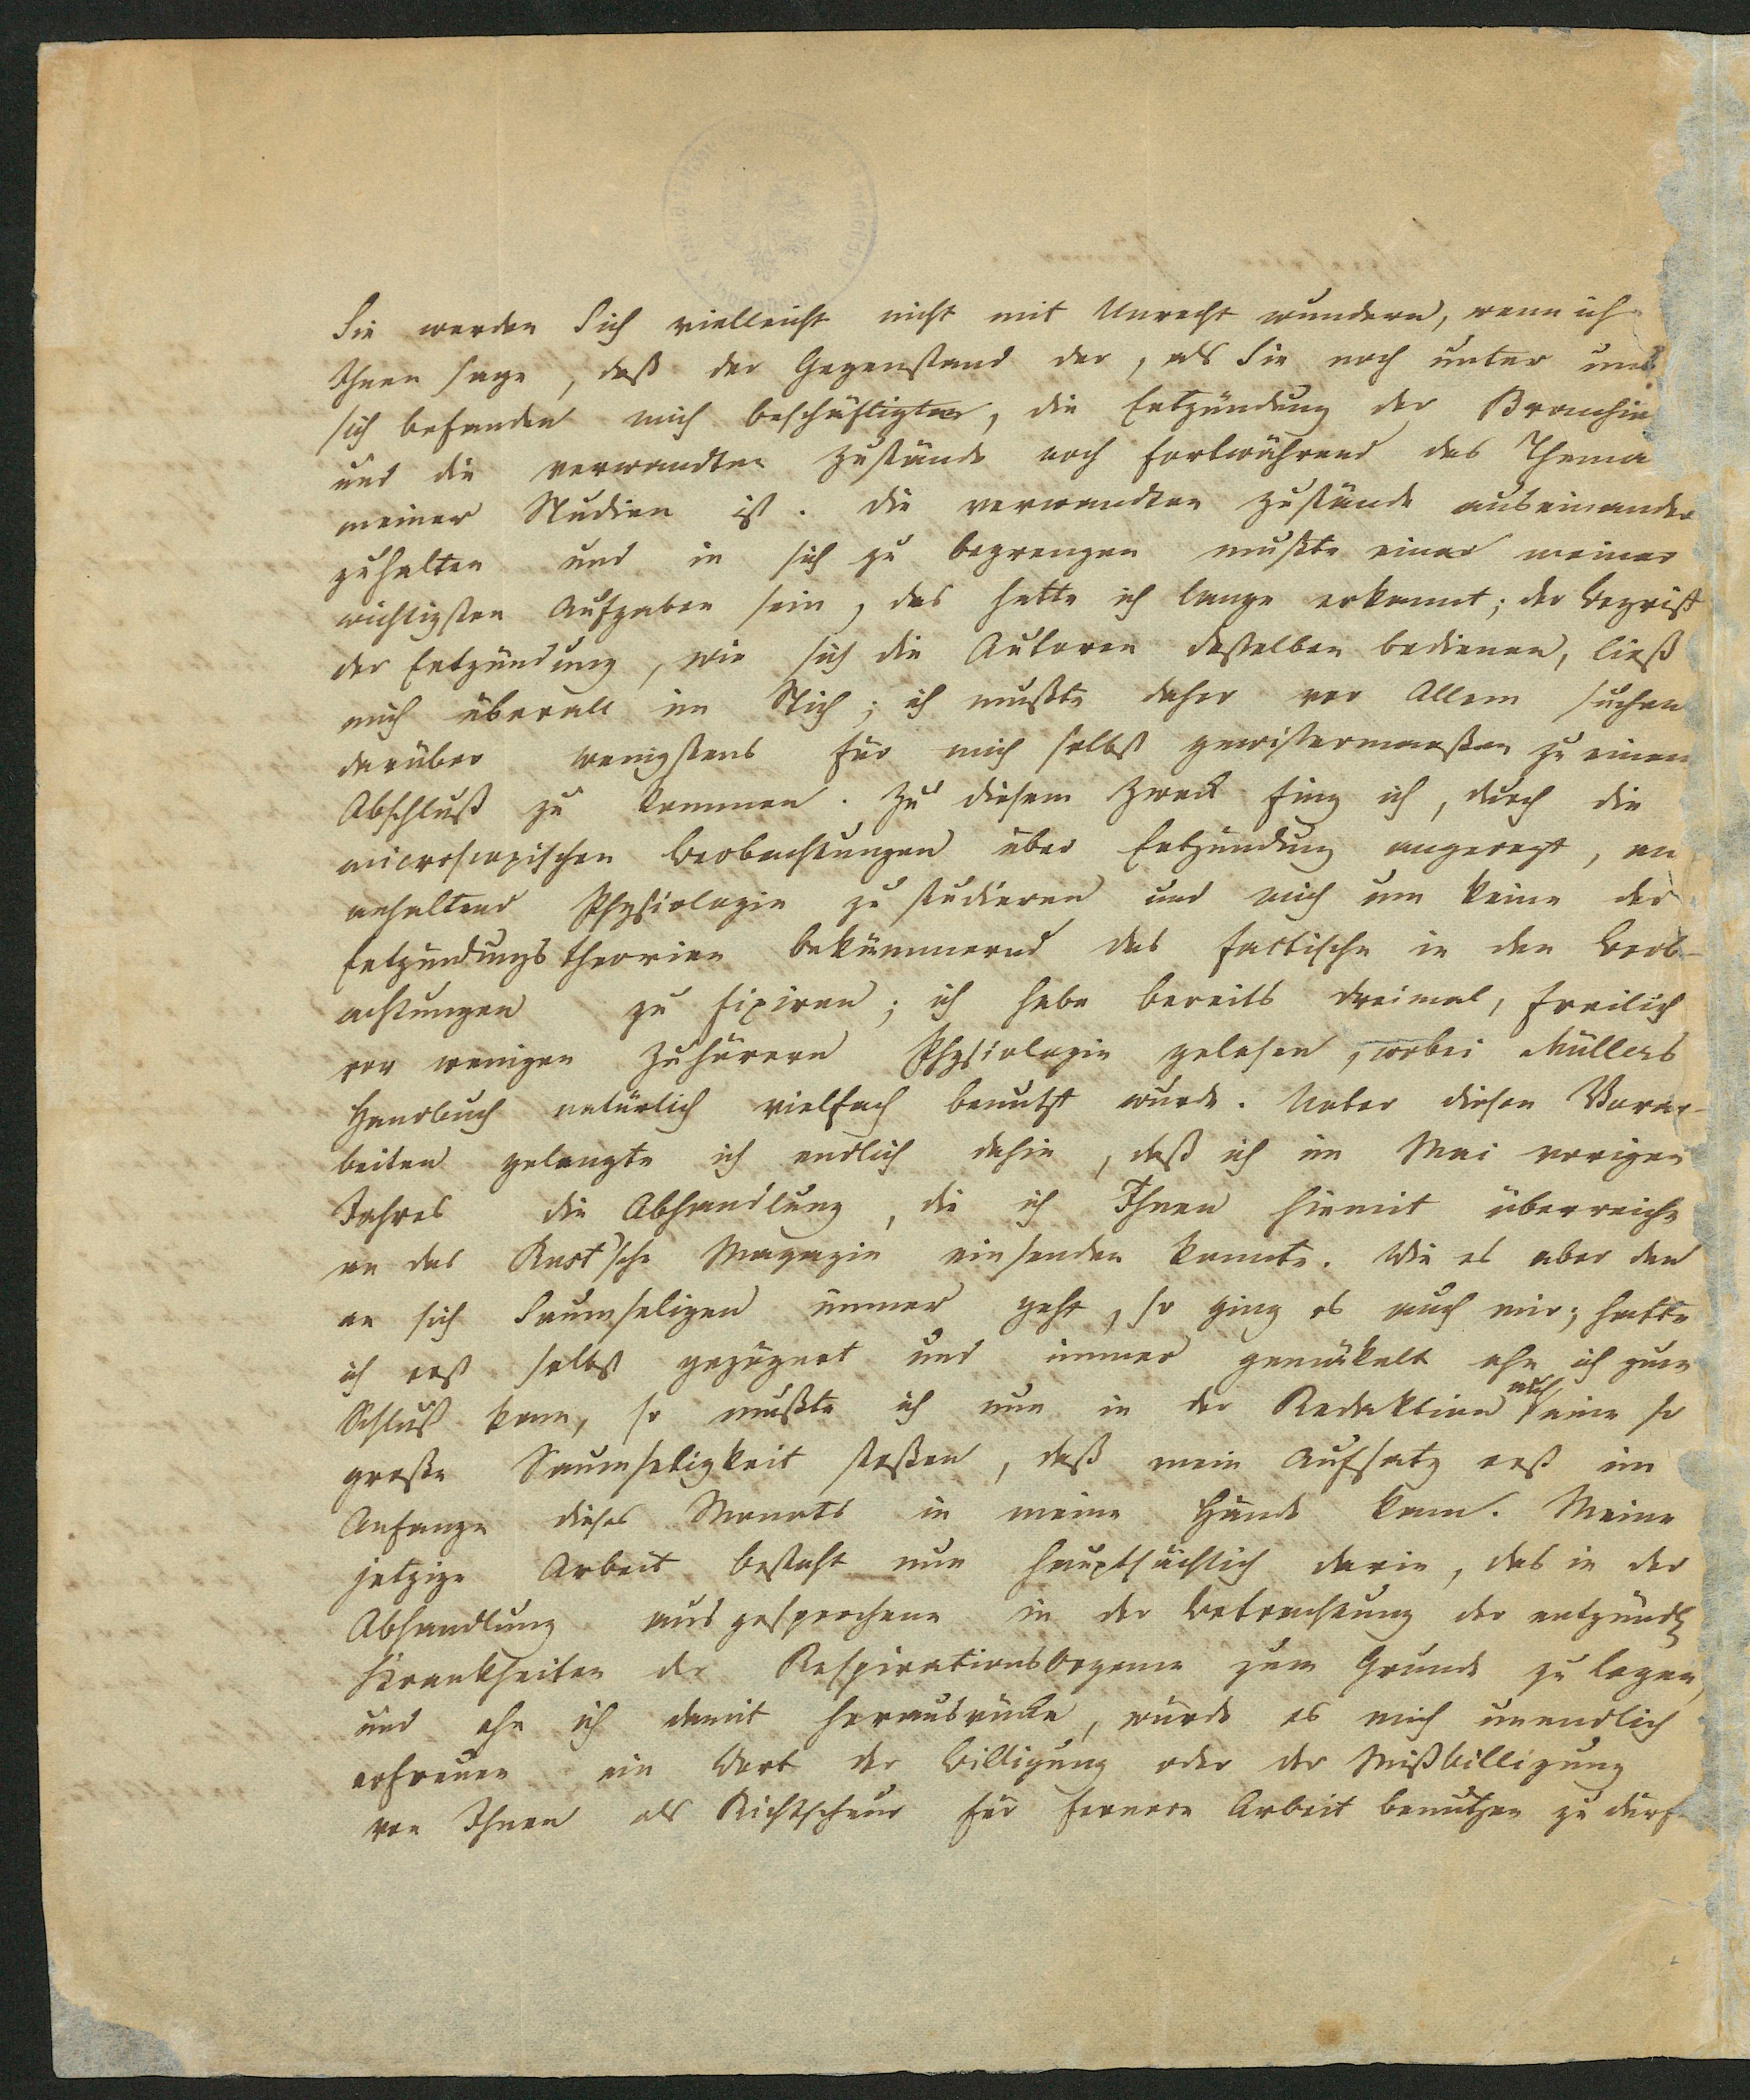 Sie werden Sich vielleicht nicht mit Unrecht wundern, wenn ich
Ihnen sage, daß der Gegenstand der, als Sie noch unter uns
sich befanden mich beschäftigte, die Entzündung der Bronchien
und die verwandten Zustände noch fortwährend das Thema
meiner Studien ist. Die verwandten Zustände auseinander
zuhalten und in sich zu begrenzen mußte einer meiner
wichtigsten Aufgaben sein, das hatte ich lange erkannt; der Begriff
der Entzündung, wie sich die Autoren desselben bedienen, ließ
mich überall im Stich; ich mußte daher vor Allem suchen
darüber wenigstens für mich selbst gewissermaaßen zu einem
Abschluß zu kommen. Zu diesem Zweck fing ich, durch die
microscopischen Beobachtungen über Entzündung angeregt, an
anhaltend Physiologie zu studieren und mich um keine der
Entzündungstheorien bekümmernd das factische in den Beob-
achtungen zu fixiren; ich habe bereits dreimal, freilich
vor wenigen Zuhörern Physiologie gelesen, wobei Müllers
Handbuch natürlich vielfach benutzt wurde. Unter diesen Vorar-
beiten gelangte ich endlich dahin, daß ich im Mai vorigen
Jahres die Abhandlung, die ich Ihnen hiemit überreiche
an das Rust'sche Magazin einsenden konnte. Wie es aber den
an sich Saumseligen immer geht, so ging es auch mir; hatte
ich erst selbst gezögert und immer gemäkelt ehe ich zum
Schluß kam, so mußte ich nun in der Redaktion auch eine so
große Saumseligkeit stoßen, daß mein Aufsatz erst im
Anfange dieses Monats in meine Hände kam. Meine
jetzige Arbeit besteht nun hauptsächlich darin, das in der
Abhandlung ausgesprochene in der Betrachtung der entzündl
Krankheiten der Respirationsorgane zum Grunde zu legen,
und ehe ich damit herausrücke, würde es mich unendlich
erfreuen ein Wort der Billigung oder der Mißbilligung
von Ihnen als Richtschnur für fernere Arbeit benutzen zu dürf